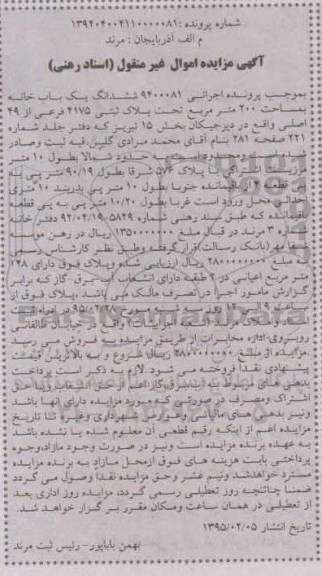 شماره پرونده :۱۳۹۴۰۴۰۰۴۲۱۱۰۰۰۰۰۰۸۱
م الف آذربایجان : مرند
آگهی مزایده اموال غیر منقول (اسناد رهنی)
بموجب پرونده اجرائی ۹۴۰۰۰۸۱ ششدانگ یک باب خانه
بمساحت ۲۰۰ متر مربع تحت پلاک ثبتی ۴۱۷۵ فرعی از ۴۹
اصلی واقع در دیزجیکان بخش ۱۵ تبریز که دفتر جلد شماره
۲۲۱ صفحه ۲۸۱ بنام آقای محمد مرادی گلین قیه ثبت وصادر
حدود شمالا بطول ۱۰ متر
پلاک ۵۷۶ شرقا بطول ۹۰/۱۹ متر پی به
پی قطعه باقیمانده جنوبا بطول ۱۰ متر پی بدربند ۱۰ متری
محل ورود است غربا بطول ۱۰/۲۰ متر پی به پی قطعه
باقیمانده که طبق سند رهنی شماره ۵۸۲۹-۹۲/۰۴/۱۹ دفترخانه
شماره ۳ مرند در قبال مبلغ ریال در رهن
(بانک رسالت)قرار گرفته وطبق نظر کارشناس رسمی
به مبلغ ۲۸۰۰۰۰۰۰۰۰ ریال ارزیابی شده وپلاک فوق دارای ۲۲۸
متر مربع اعیانی در ۲ طبقه دارای انشعاب آب-برق-گاز که برابر
گزارش مامور اجرا در تصرف مالک می باشد ،پلاک فوق از
ساعت روز
ومحل مزایده واقع در خیابان طالقانی
روبروی اداره مخابرات از طریق مزایده به فروش می رسد
مزایده از مبلغ ۲۸۰۰۰۰۰۰۰۰ ریال شروع و به بالاترین قیمت
پیشنهادی نقدا فروخته می شود. لازم به ذکر است پرداخت
بدهی های مربوط به
اشتراک ومصرف در صورتی که مورد مزایده دارای آنها باشد
ونیز بدهی های مالیاتی وعوارض شهرداری وغیره تا تاریخ
مزایده اعم از اینکه رقم قطعی آن معلوم شده یا نشده باشد
به عهده برنده مزایده است ونیز در صورت وجود مازاد،وجوه
پرداختی بابت هزینه های فوق ازمحل مازاد به برنده مزایده
مسترد خواهدشد ونیم عشر وحق مزایده نقدا وصول می گردد
ضمناً چنانچه روز تعطیلی رسمی گردد، مزایده روز اداری بعد
از تعطیلی در همان ساعت ومکان مقرر بر گزار خواهد شد.
تاریخ انتشار ۱۳۹۵/۰۲/۰۵
بهمن باباپور- رئیس ثبت مرند